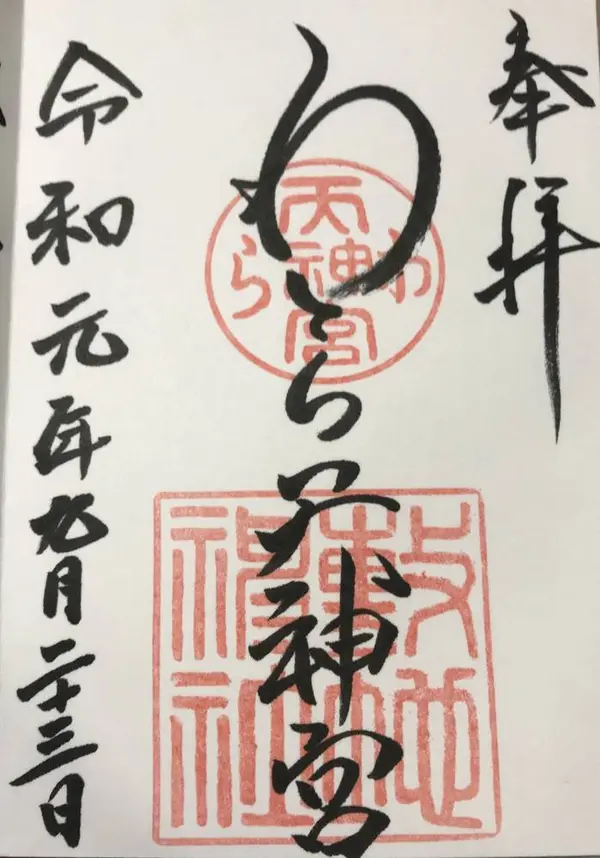 奉拝
わら天神宮
令和元年九月二十三日
わら
天神宮
敷地
神社